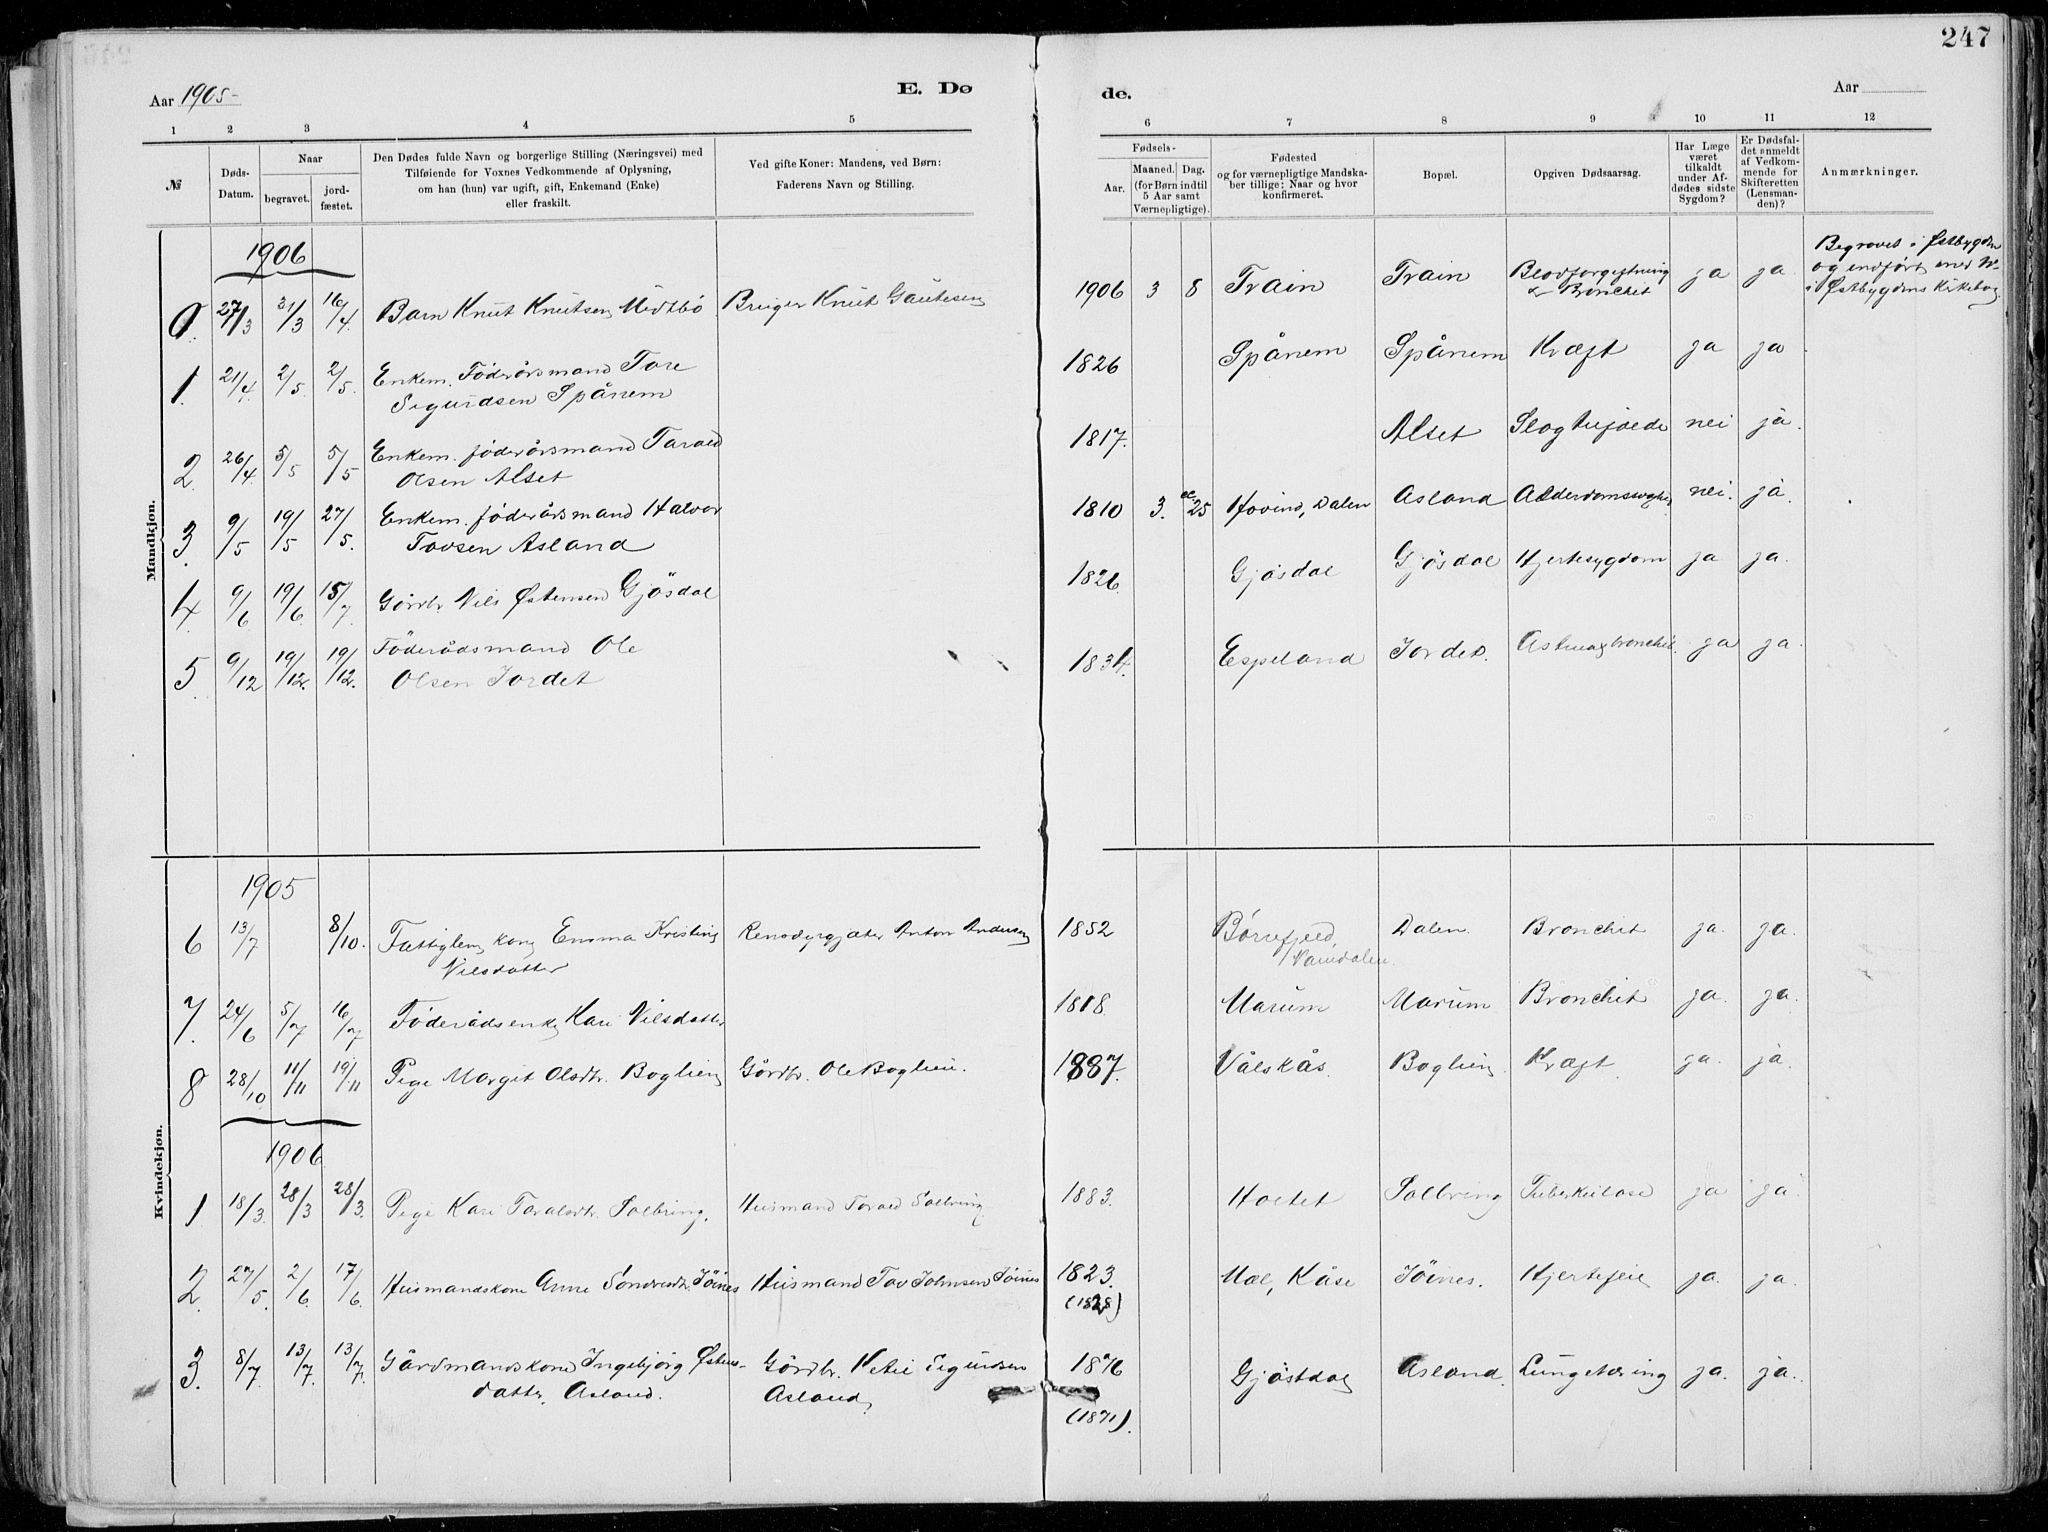 247
Aar 1905
E. Dø
de.
Aar
1 2 3 4 5 6 7 8 9 10 11 12
№
Døds-Datum.
Naar
begravet.
jord-fæstet.
Den Dødes fulde Navn og borgerlige Stilling (Næringsvei) med
Tilføiende for Voxnes Vedkommende af Oplysning,
om han (hun) var ugift, gift, Enkemand (Enke)
eller fraskilt.
Ved gifte Koner: Mandens, ved Børn:
Faderens Navn og Stilling.
Fødsels-
Aar.
Maaned. Dag.
(for Børn indtil
5 Aar samt
Værnepligtige).
Fødested
og for værnepligtige Mandska-
ber tillige: Naar og hvor
konfirmeret.
Bopæl.
Opgiven Dødsaarsag.
Har Læge
været
tilkaldt
under Af-
dødes sidste
Sygdom?
Er Dødsfal-
det anmeldt
af Vedkom-
mende for
Skifteretten
(Lensman-
den)?
Anmærkninger.
Mandkjøn.
1906
0. 27/3 31/3 16/4. Barn Knut Knutsen Midtbö Bruger Knut Gautesen 1906 3 8 Train Train Blodforgiftning
& Bronchit ja ja Begravet i Østbygden
og indført med №
i Østbygdens Kirkebog.
1. 21/4. 2/5. 2/5. Enkem. Föderårsmand Tore
Sigurdsen Spånem 1826 Spånem Spånem Kræft ja ja
2. 26/4. 5/5 5/5 Enkem. föderårsmand Tarald
Olsen Alset 1817. Alset nei ja.
3. 9/5 19/5 27/5. Enkem. föderårsmand Halvor
Tovsen Asland 1810 3. 25 Hovind, Dalen Asland nei. ja.
4. 9/6 19/6. 15/7. Gårdbr. Nils Østensen Gjösdal 1826. Gjösdal Gjösdal Hjertesygdom ja ja.
5. 9/12 19/12. 19/12. Föderådsmand Ole
Olsen Jordet 1834. Espeland Jordet. ja ja.
Kvindekjøn.
1905
6 13/7 8/10. kone Emma Kristine
Nilsdatter Anton Andersen 1852
Namdalen. Dalen Bronchit ja. ja.
7. 24/6 5/7 16/7 Föderådsenke Kari Nilsdatter 1818 Marum Marum Bronchit ja. ja.
8 28/10 11/11 19/11 Pige Margit Olsdtr. Boglien Gårdbr. Ole Boglien. 1887. Vålskås. Boglien Kræft ja. ja.
1906
1 18/3. 28/3 28/3. Pige Kari Taralsdtr. Solbring. Husmand Tarald Solbring 1883. Holtet Solbring Tuberkulose ja ja
2. 27/5. 2/6. 17/6. Husmandskone Anne Söndresdtr. Jöines Husmand Tov Johnsen Jöines 1823.
(1828) Mæl, Kåse Jöines. Hjertefeil ja. ja.
3. 8/7 13/7. 13/7. Gårdmandskone Ingebjörg Østens-
datter Asland. Gårdbr. Ketil Sigurdsen
Asland, 1876
(1871). Gjöstdal Asland. Lungetæring ja. ja.